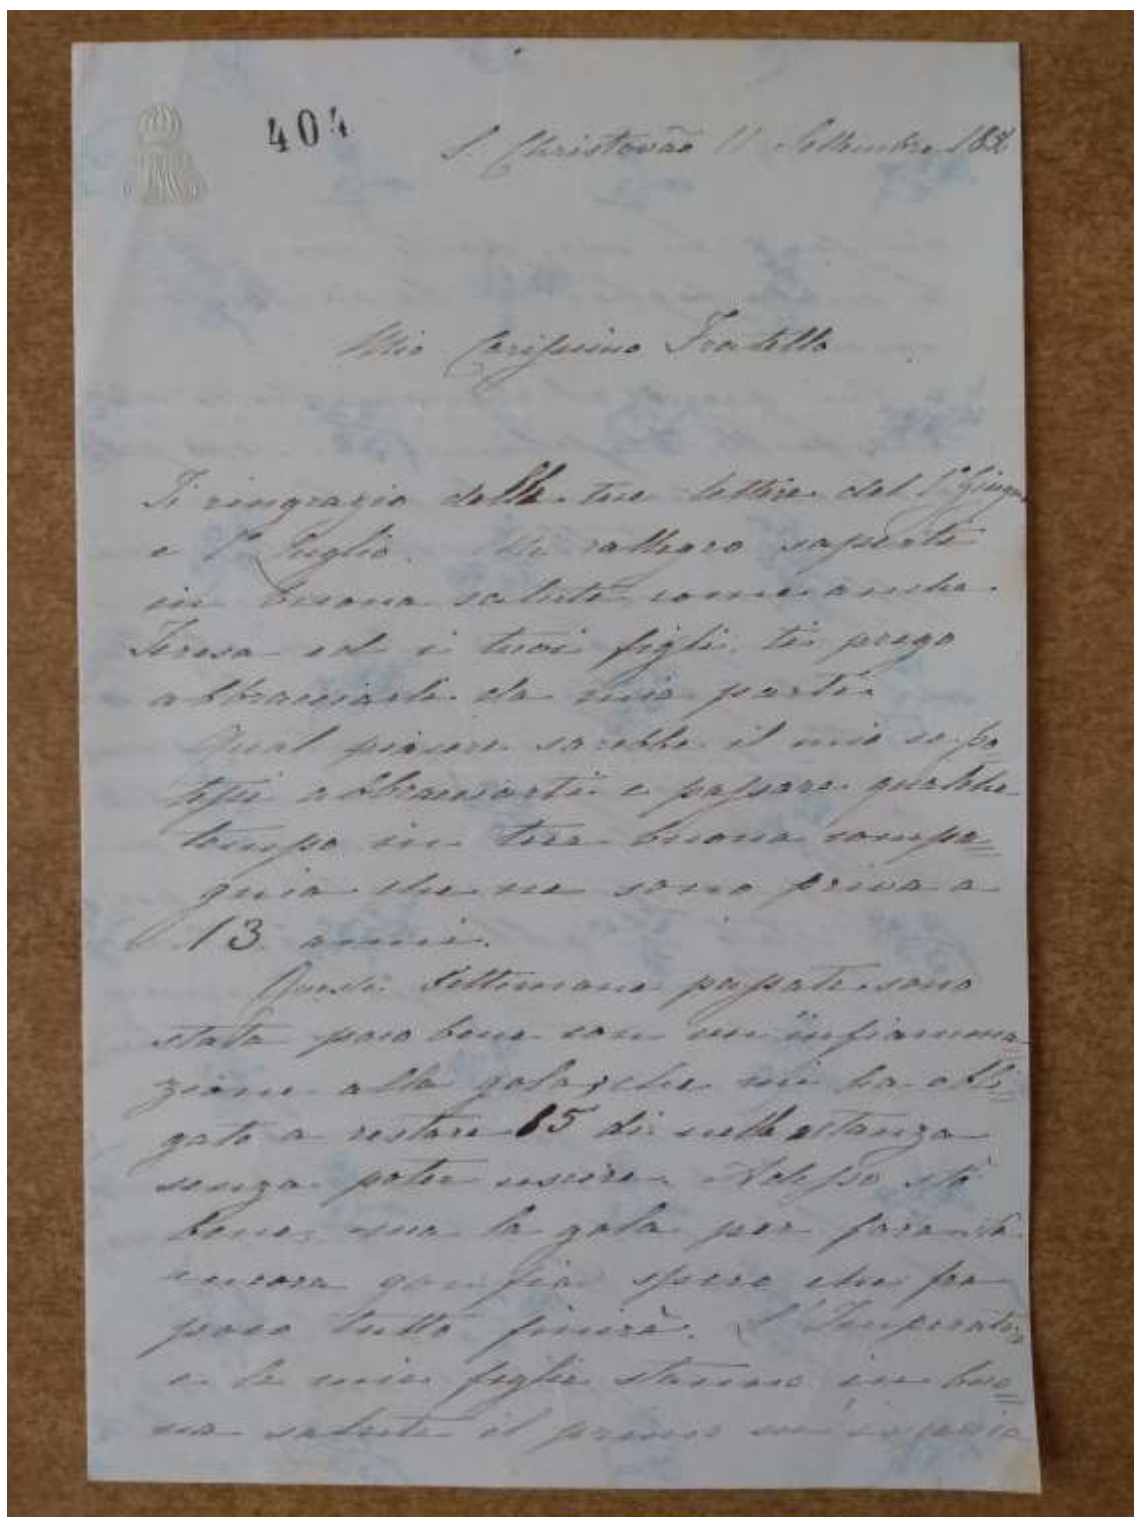 404
S. Christovão 11 Settembre 185
Mio Carissimo Fratello
Ti ringrazio delle tue lettere del 1° Giugno
e 1° Luglio. Mi rallegro saperti
in buona salute come anche
Teresa ed i tuoi figli, ti prego
abbracciarli da mia parte.
Qual piacere sarebbe il mio se po=
tessi abbracciarti e passare qualche
tempo in tua buona compa=
gnia che ne sono priva a
13 anni.
Queste Settimane passate sono
stata poco bene con un'infiamma
zione alla gola, che mi ha obli=
gato a restare 15 di nella stanza
senza poter uscire. Adesso stò
bene, ma la gola per fora stà
ancora gonfia spero che fra
poco tutto finirà. L'Imperatore
e le mie figlie stanno in buo=
na salute il primo